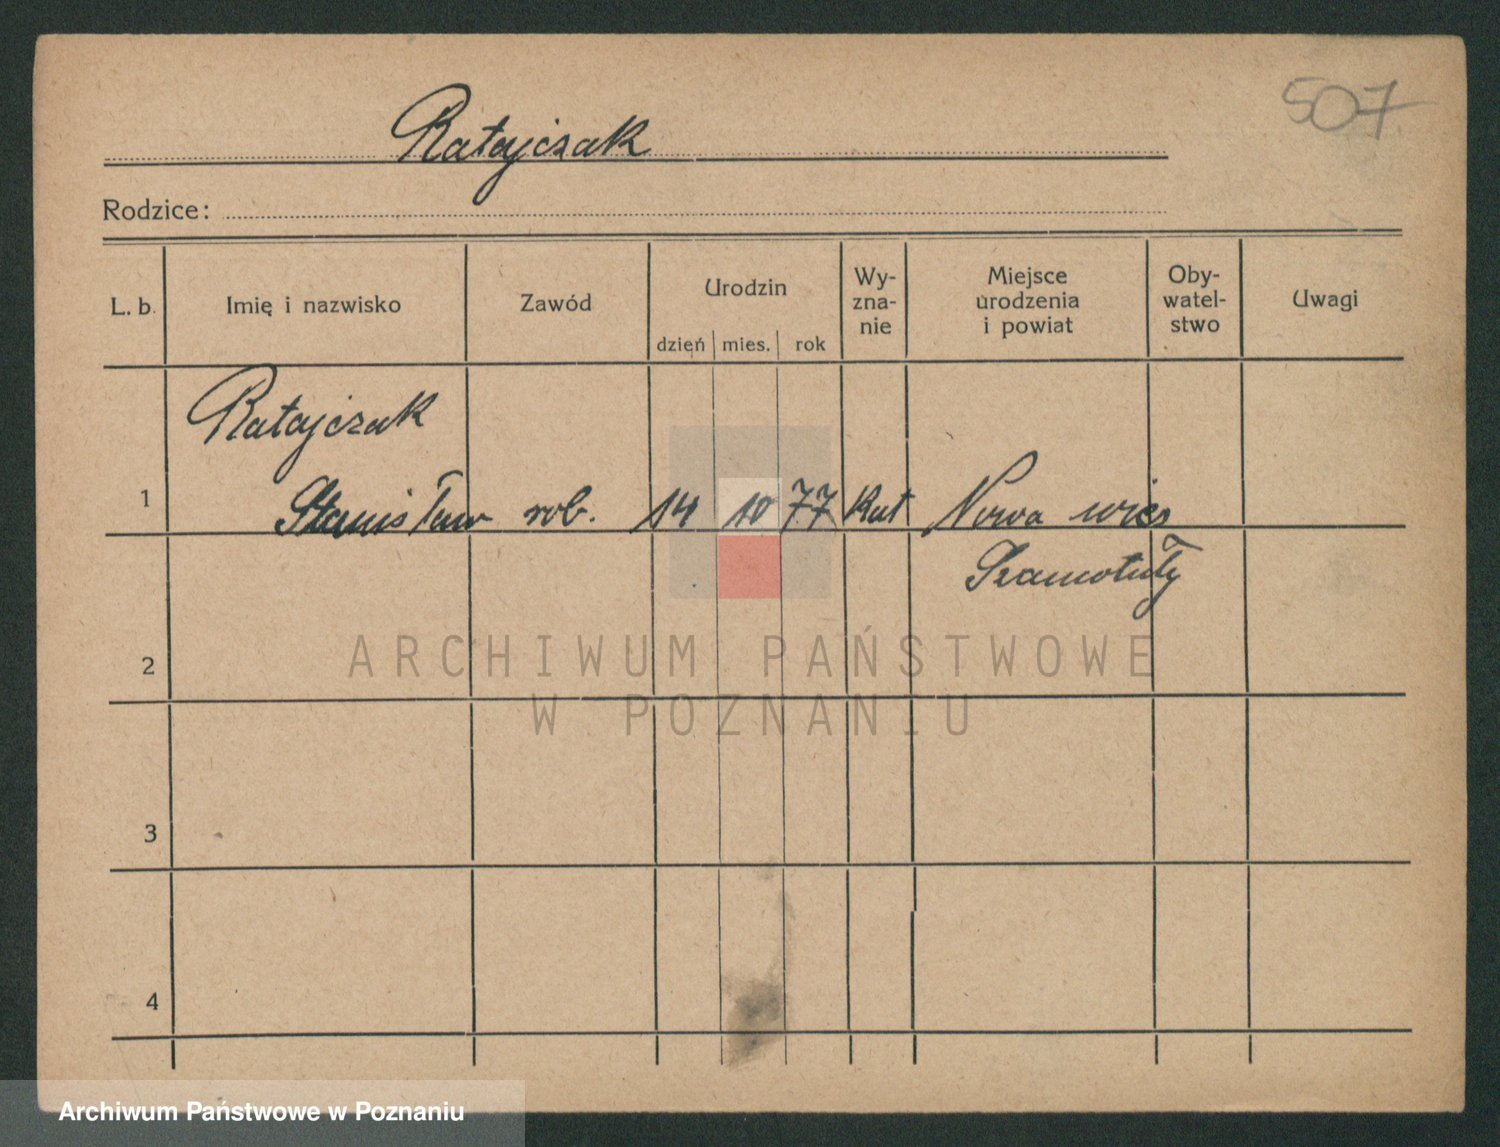 507
Ratajczak
Rodzice:
L. b. Imię i nazwisko Zawód Urodzin dzień mies. rok Wy-zna-nie Miejsce urodzenia i powiat Oby-watel-stwo Uwagi
Ratajczak
1 Stanisław rob. 14 10 77 Kat Nowa wieś
Szamotuły
2
ARCHIWUM PAŃSTWOWE
W POZNANIU
3
4
Archiwum Państwowe w Poznaniu